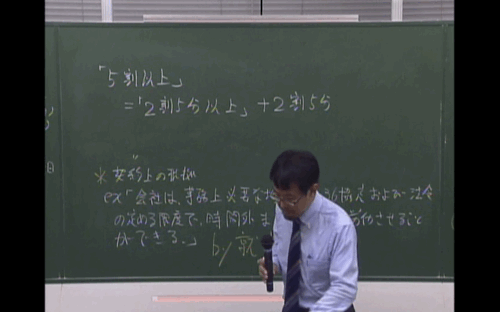 「5割以上」
=「2割5分以上」+2割5分
※ 契約上の根拠
ex「会社は、業務上必要な 36協定および法令
の定める限度で、時間外ま 労働させること
ができる。」
by 就
日